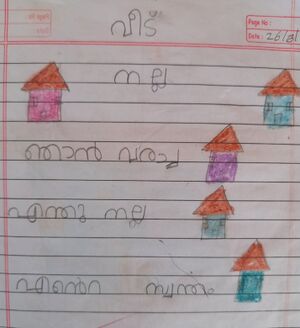 വീട്
Page No :
Date : 26/8/
നല്ല
ഞാൻ വരച്ച
എന്തു നല്ല
എന്റെ സ്വന്തം